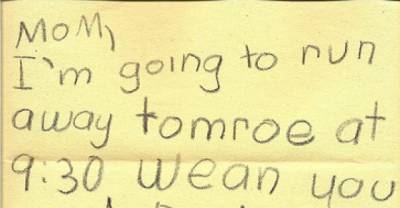 MOM,
I'm going to run
away tomroe at
9:30 wean you